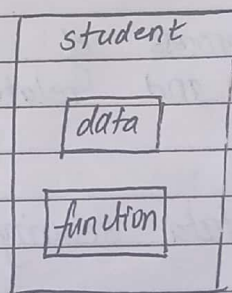 student
data
function